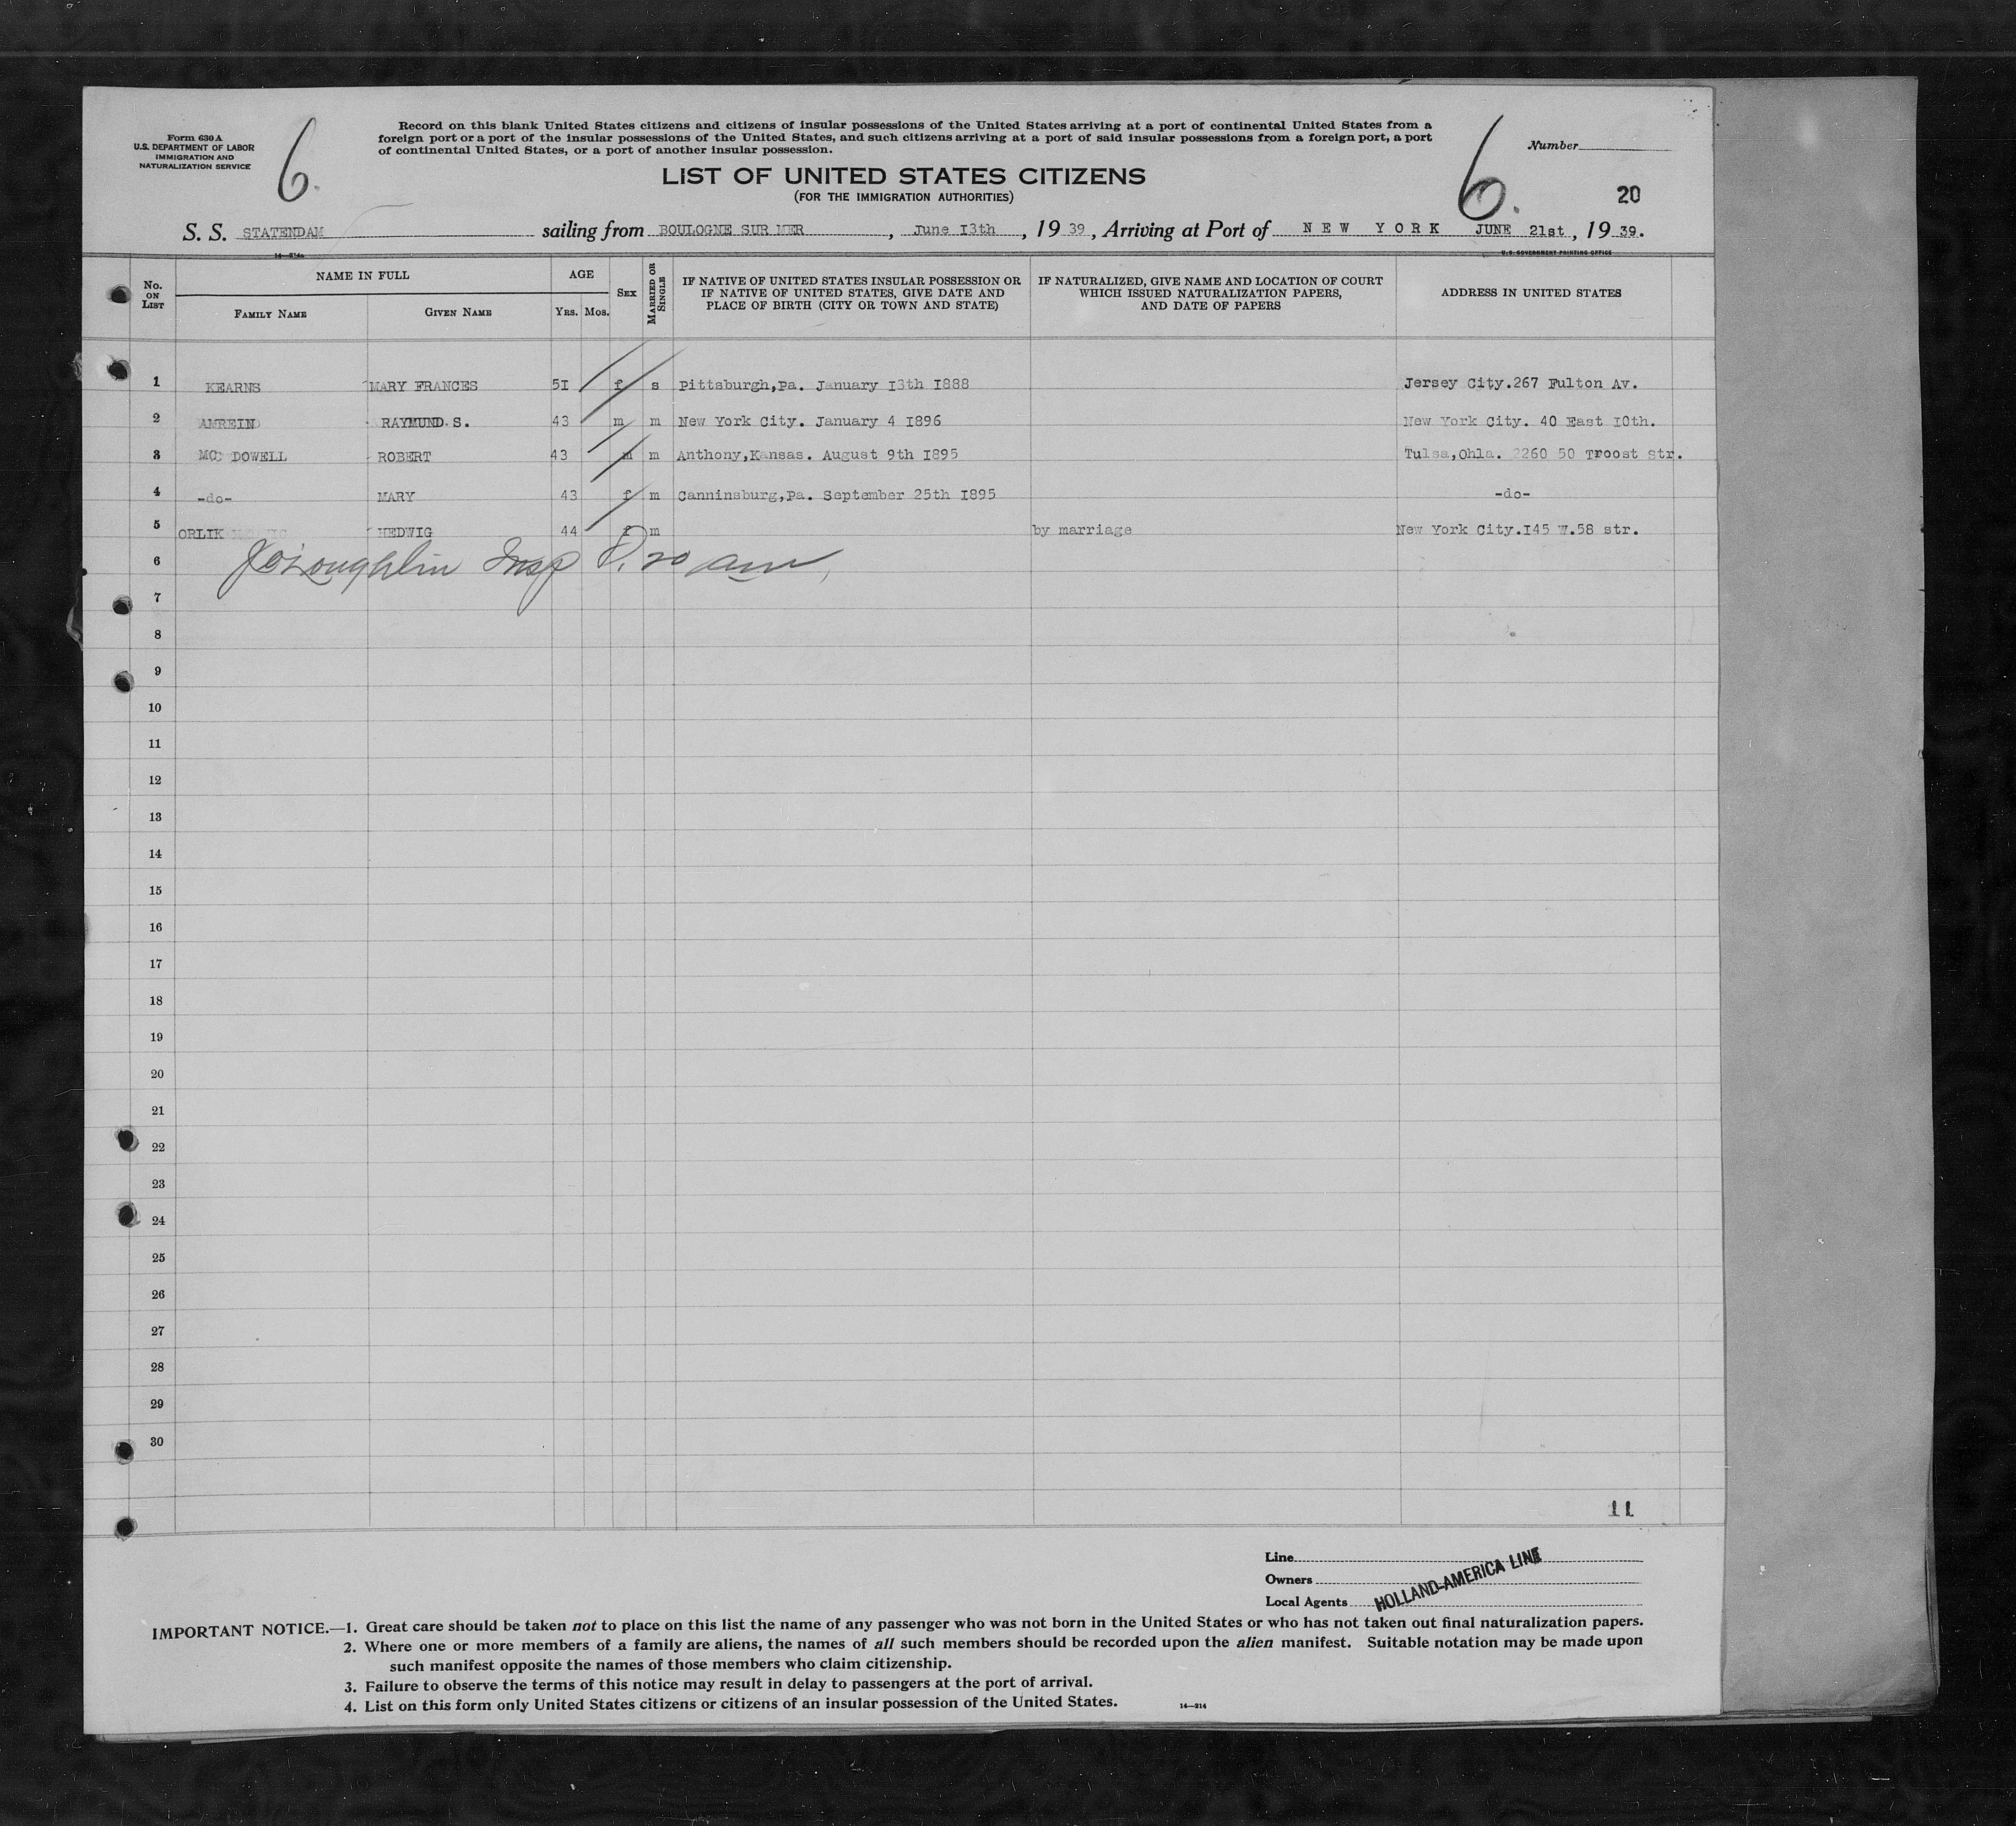 Form 630 A
U.S. DEPARTMENT OF LABOR
IMMIGRATION AND
NATURALIZATION SERVICE
6.
Record on this blank United States citizens and citizens of insular possessions of the United States arriving at a port of continental United States from a
foreign port or a port of the insular possessions of the United States, and such citizens arriving at a port of said insular possessions from a foreign port, a port
of continental United States, or a port of another insular possession.
LIST OF UNITED STATES CITIZENS
(FOR THE IMMIGRATION AUTHORITIES)
6.
Number
20
S. S. STATENDAM sailing from BOULOGNE SUR MER, June I3th, 19 39, Arriving at Port of NEW YORK JUNE 21st, 19 39.
14—214a
U.S. GOVERNMENT PRINTING OFFICE
No. ON LIST
NAME IN FULL
FAMILY NAME
GIVEN NAME
AGE
YRS. MOS.
SEX
MARRIED OR SINGLE
IF NATIVE OF UNITED STATES INSULAR POSSESSION OR
IF NATIVE OF UNITED STATES, GIVE DATE AND
PLACE OF BIRTH (CITY OR TOWN AND STATE)
IF NATURALIZED, GIVE NAME AND LOCATION OF COURT
WHICH ISSUED NATURALIZATION PAPERS,
AND DATE OF PAPERS
ADDRESS IN UNITED STATES
1 KEARNS MARY FRANCES 5I f s Pittsburgh,Pa. January I3th I888 Jersey City.267 Fulton Av.
2 AMREIN RAYMUND.S. 43 m m New York City. January 4 I896 New York City. 40 East I0th.
3 MC DOWELL ROBERT 43 m m Anthony,Kansas. August 9th I895 Tulsa,Ohla. 2260 50 Troost Str.
4 -do- MARY 43 f m Canninsburg,Pa. September 25th I895 -do-
5 ORLIK HEDWIG 44 f m by marriage New York City.I45 W.58 str.
6 J O'Loughlin Insp 8.20 am
7
8
9
10
11
12
13
14
15
16
17
18
19
20
21
22
23
24
25
26
27
28
29
30
11
Line
Owners
Local Agents
HOLLAND-AMERICA LINE
IMPORTANT NOTICE.—1. Great care should be taken not to place on this list the name of any passenger who was not born in the United States or who has not taken out final naturalization papers.
2. Where one or more members of a family are aliens, the names of all such members should be recorded upon the alien manifest. Suitable notation may be made upon
such manifest opposite the names of those members who claim citizenship.
3. Failure to observe the terms of this notice may result in delay to passengers at the port of arrival.
4. List on this form only United States citizens or citizens of an insular possession of the United States.
14—214